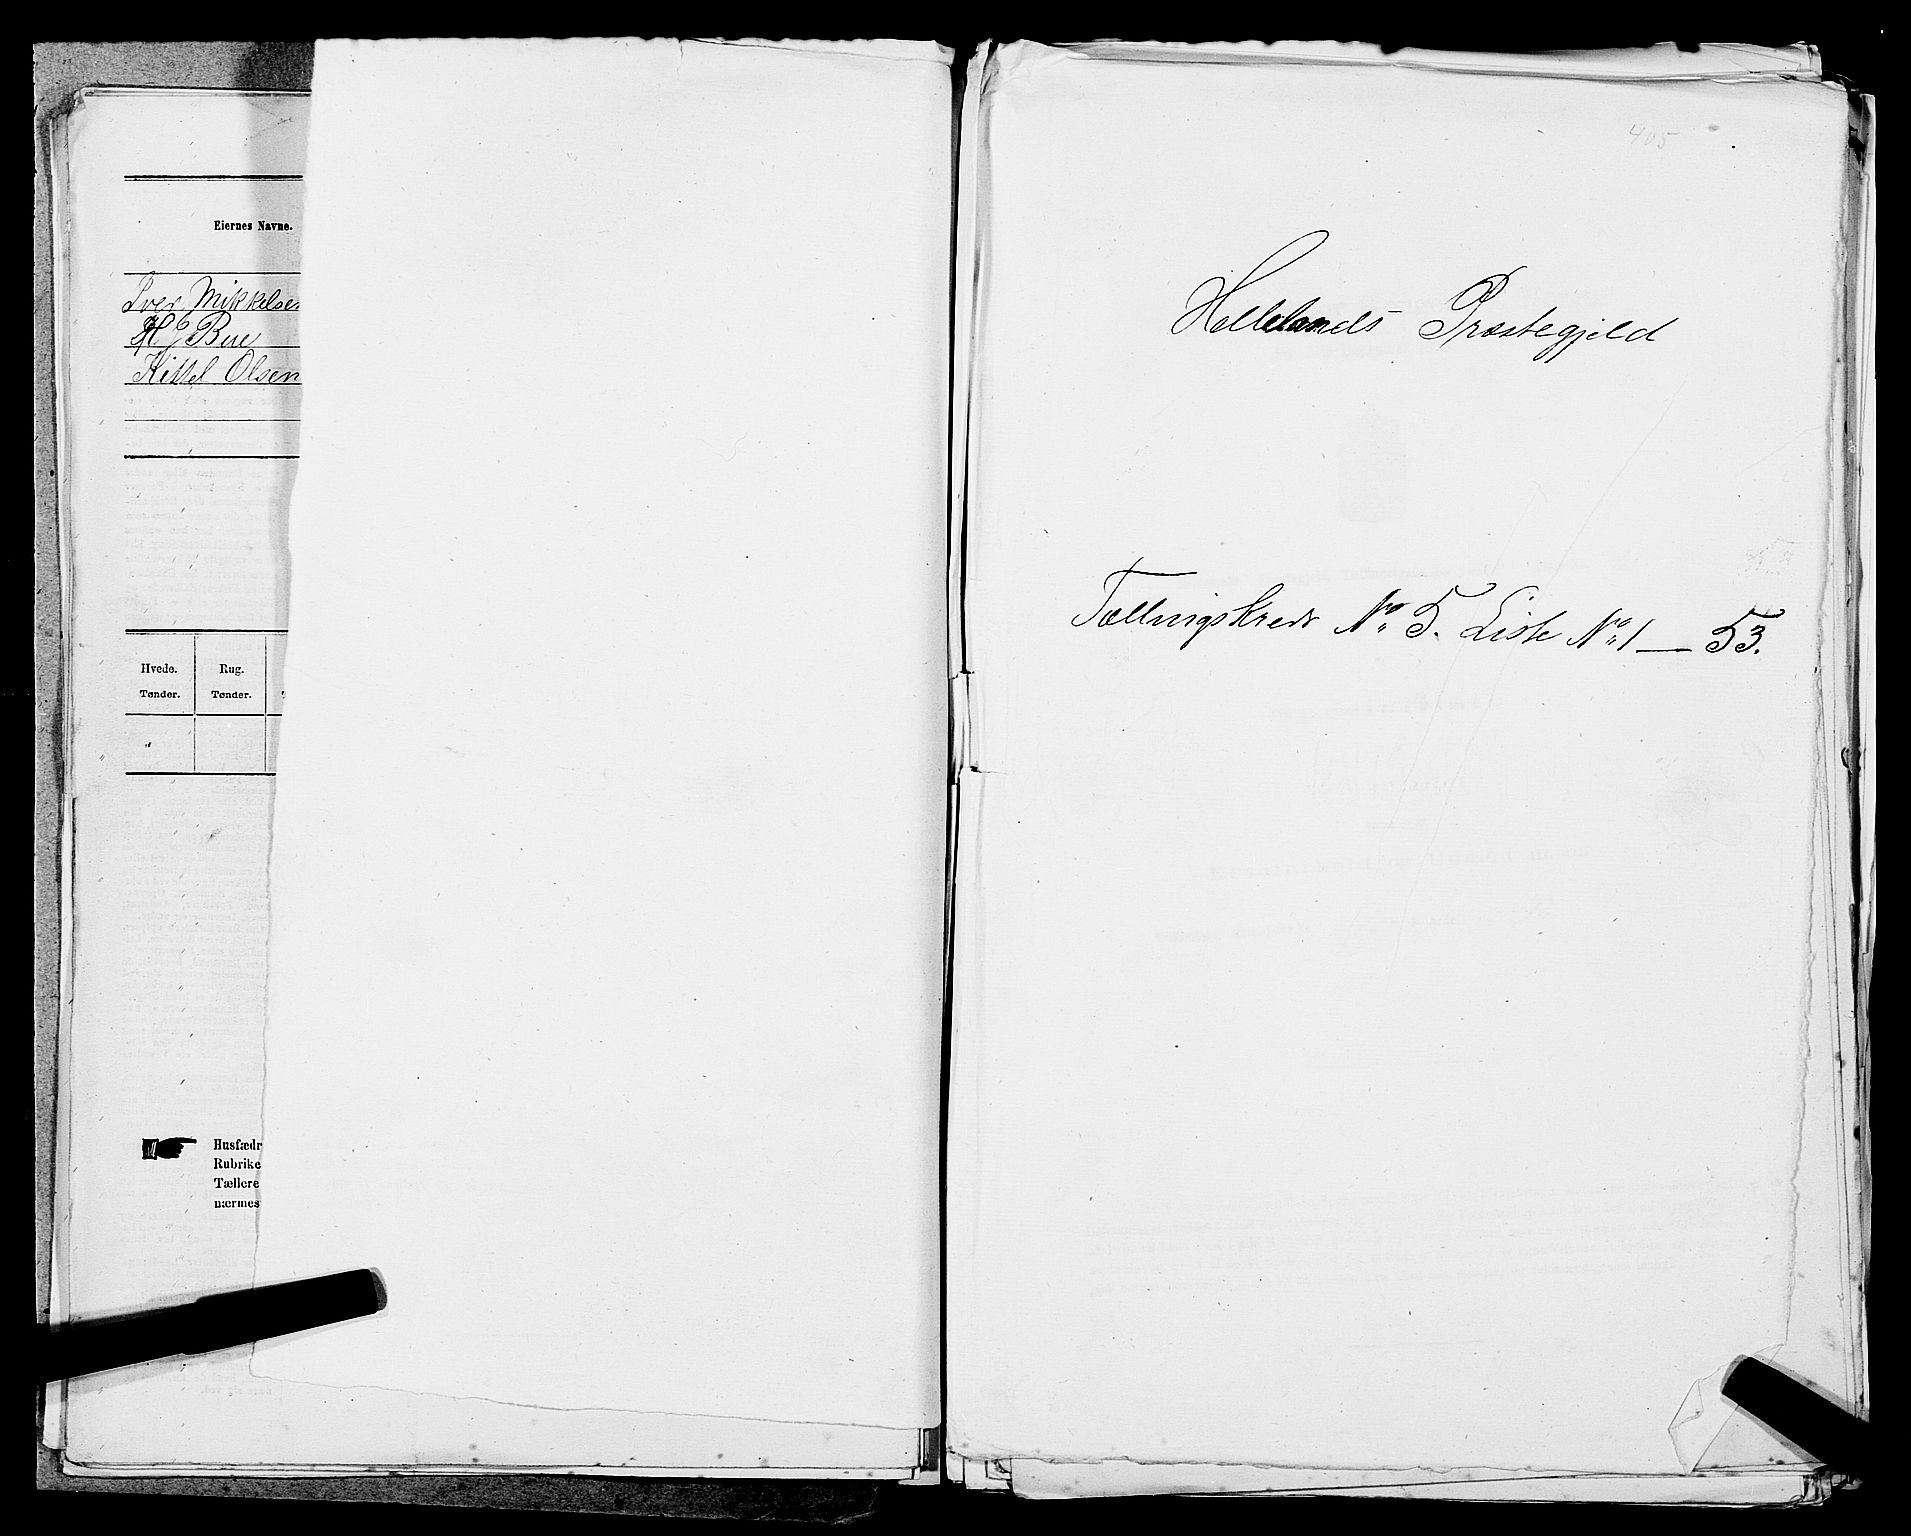 Eiernes Navne.
Iver Mikkelsen
H J Bue
Kittel Olsen
Hvede. Rug.
Tønder. Tønder.
"
Husfædr
Rubrike
Tællere
nærmes
405
Hellelands Præstegjeld
Tællingskreds No 5. Liste No 1 — 53.